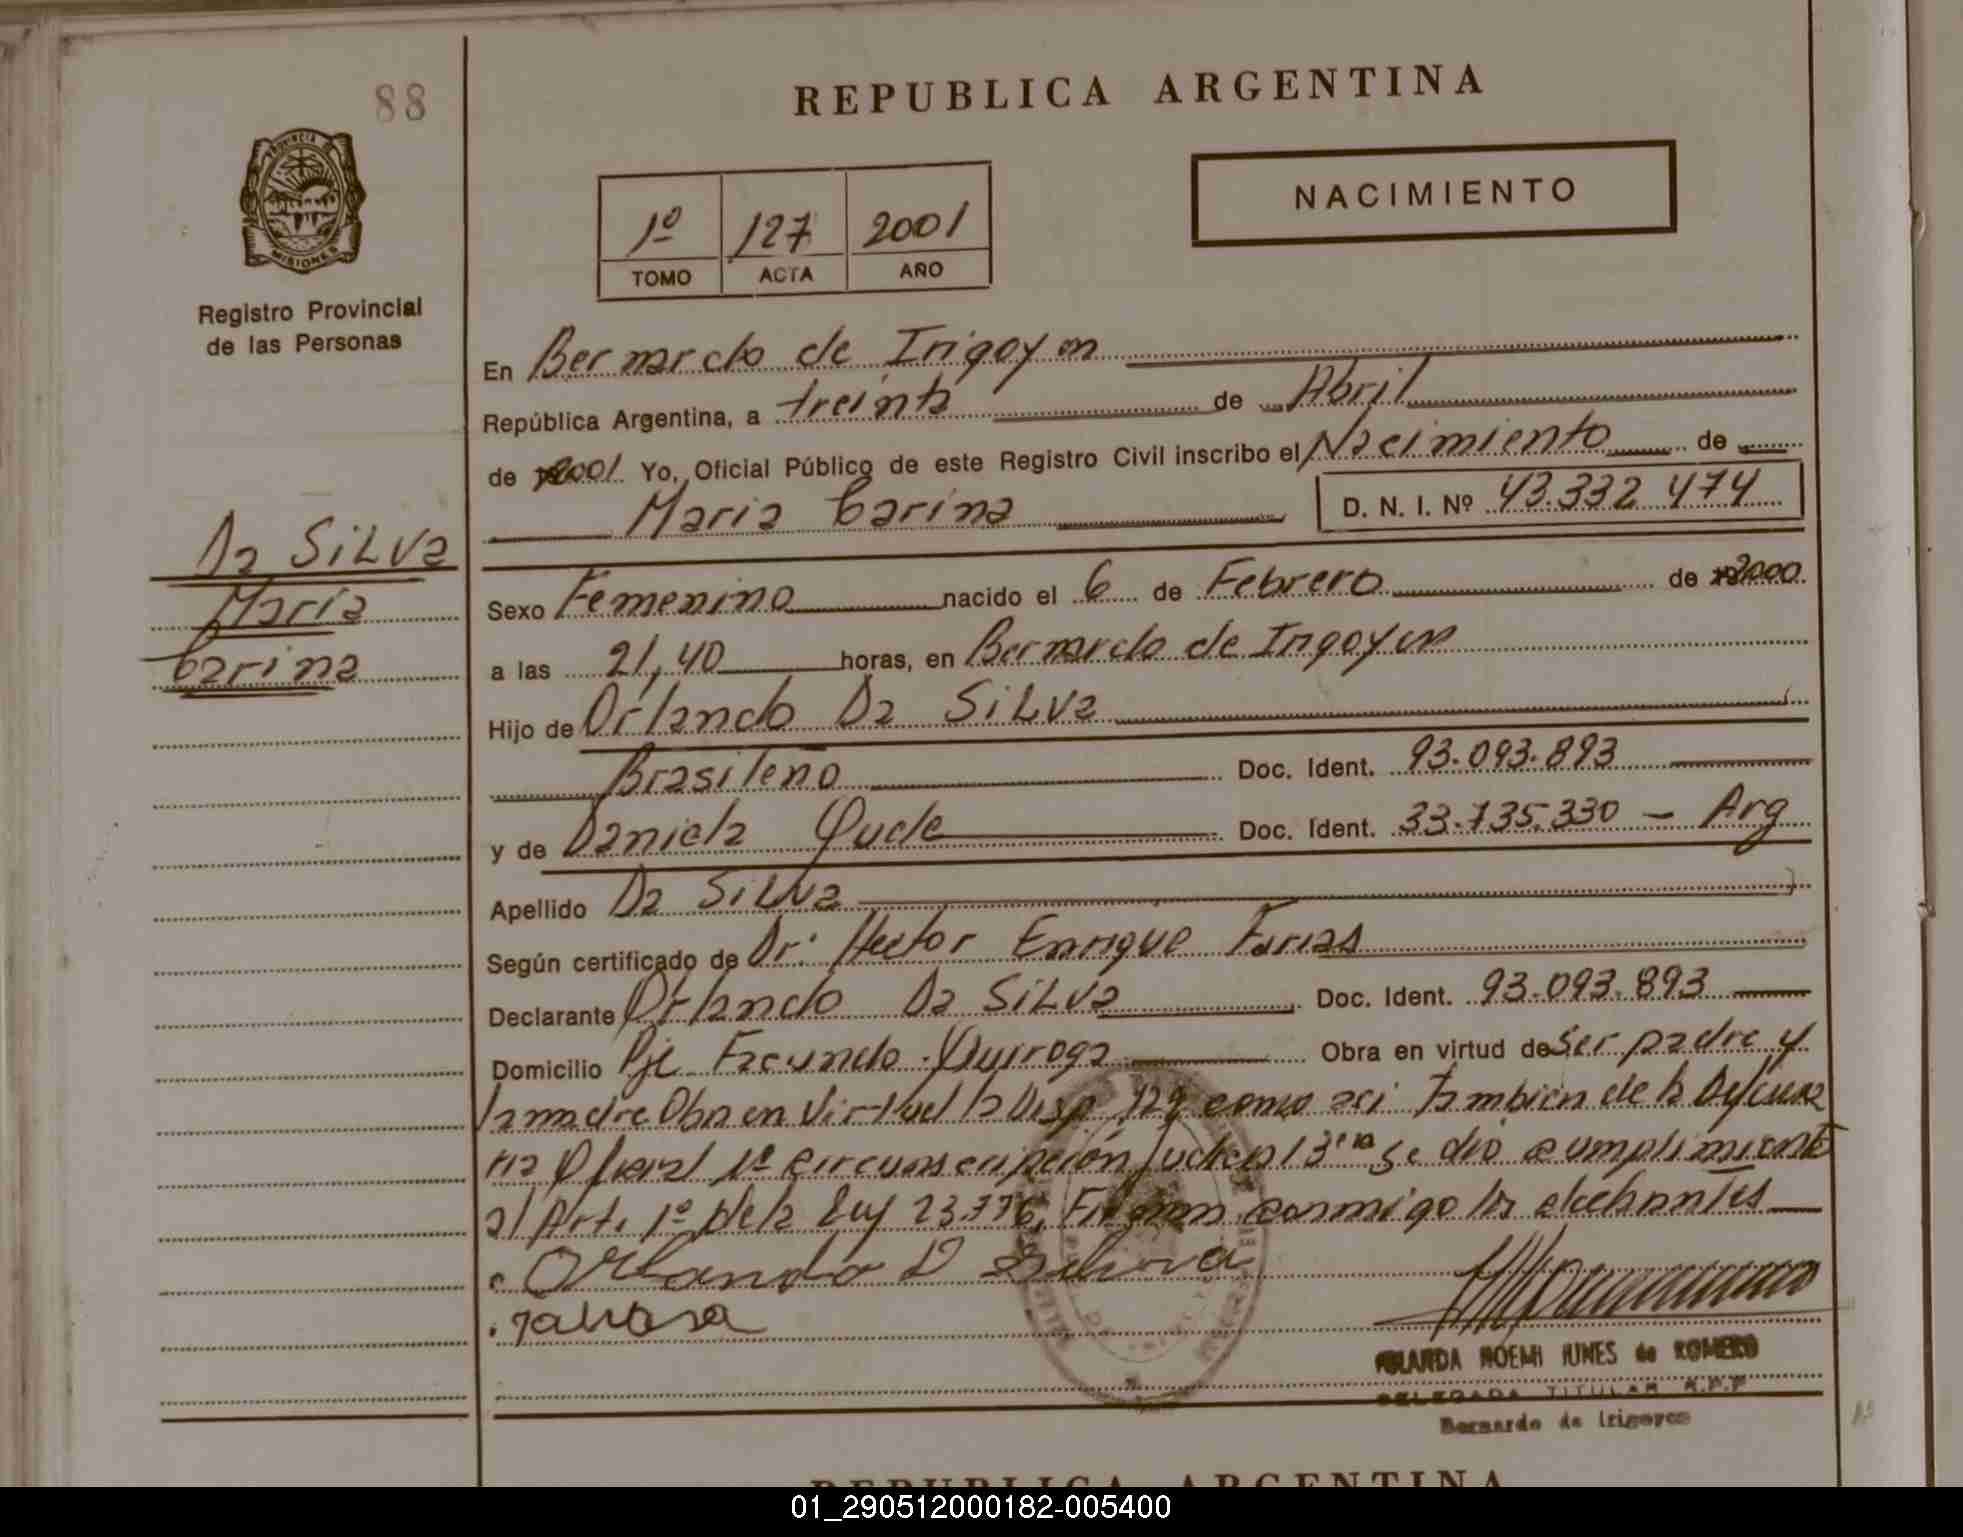 88
REPUBLICA ARGENTINA
PROVINCIA DE
MISIONES
Registro Provincial
de las Personas
NACIMIENTO
1º 127 2001
TOMO ACTA AÑO
En Bernardo de Irigoyen
República Argentina, a treinta de Abril
de 2001 Yo, Oficial Público de este Registro Civil inscribo el Nacimiento de
Maria Carina D. N. I. Nº 43.332 474
Da SiLVa
María
Carina
Sexo Femenino nacido el 6 de Febrero de 2000
a las 21,40 horas, en Bernardo de Irigoyen
Hijo de Orlando Da SiLVa
Brasileño Doc. Ident. 93.093.893
y de Daniela Doc. Ident. 33.735.330 - Arg
Apellido Da SiLVa
Según certificado de Dr. Hector Enrique Farias
Declarante Orlando Da SiLVa Doc. Ident. 93.093.893
Domicilio Pje Facundo Quiroga Obra en virtud de Ser padre y
la madre Obra en Virtud la Disp. como asi tambien de la
Oficial 1º circunscripción Judicial 3era Se dió cumplimiento
al Art. 1º de la Ley Firman conmigo los
Orlando D
YOLANDA NOEMI de ROMERO
DELEGADA TITULAR R.P.P
Bernardo de Irigoyen
REPUBLICA ARGENTINA
01_290512000182-005400